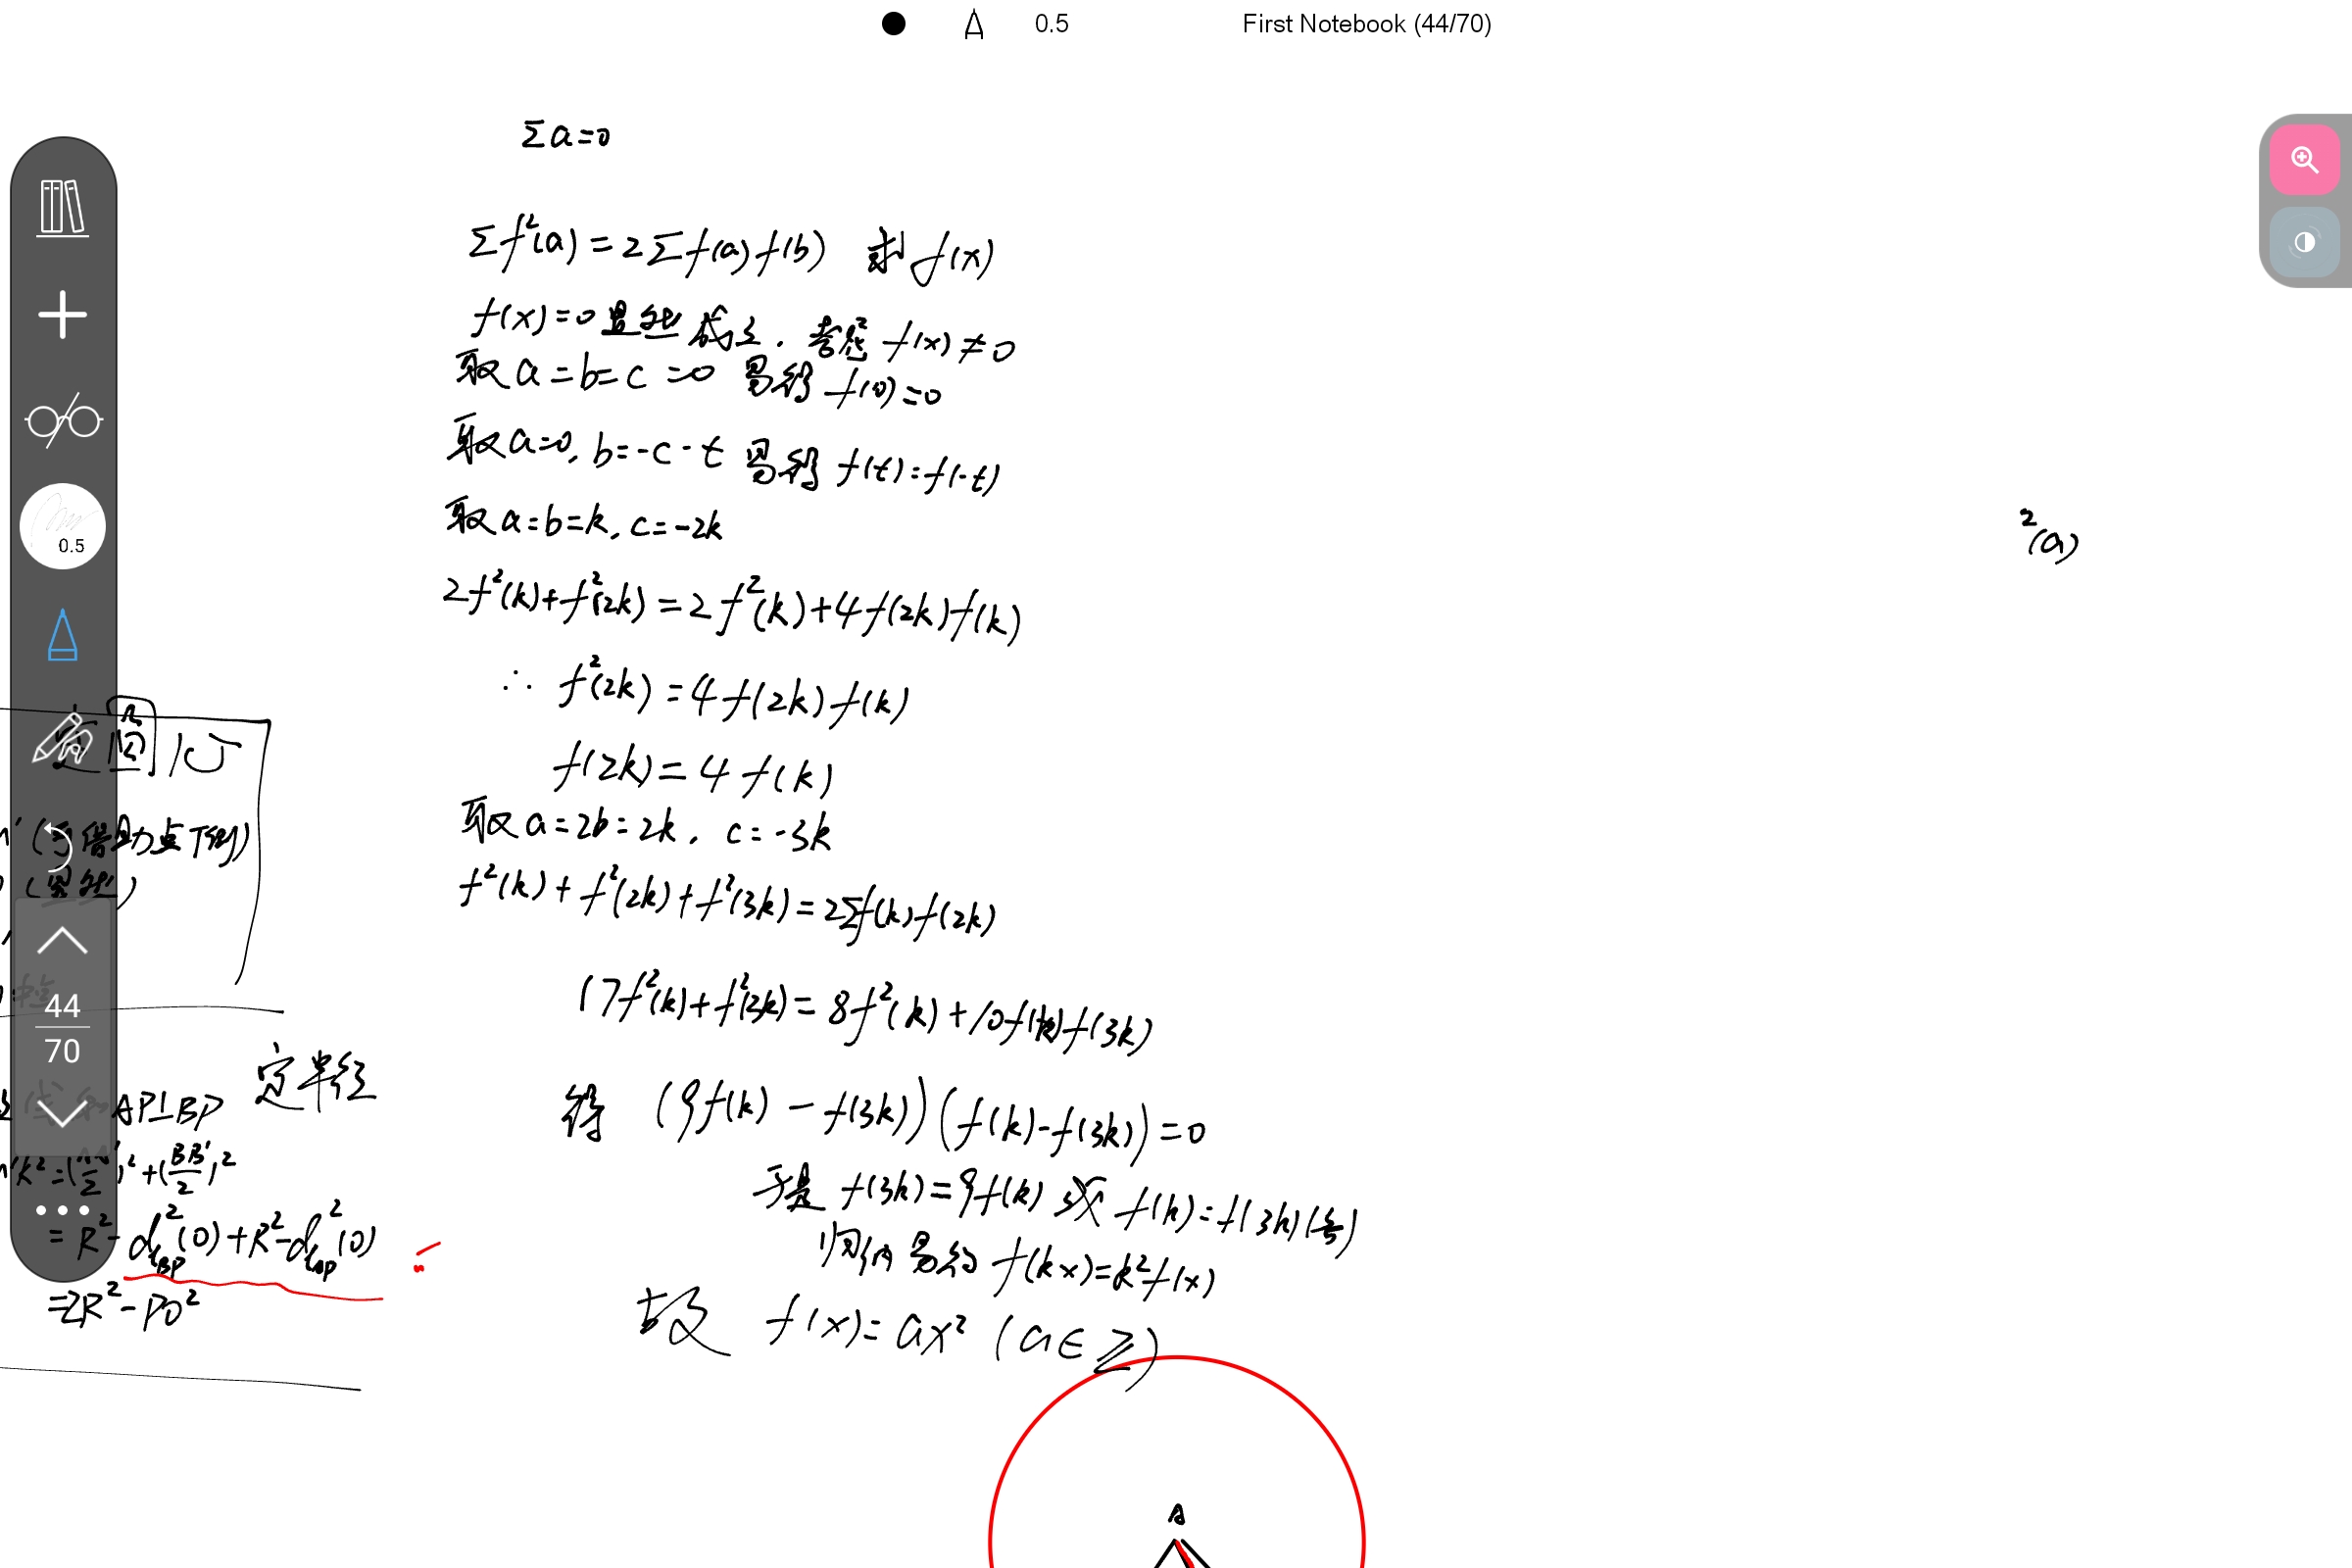 0.5 First Notebook (44/70)
Σa=0
Σf²(a)=2Σf(a)f(b) 求f(x)
f(x)=0显然成立. 考虑f(x)≠0
取a=b=c=0 易得f(0)=0
取a=0, b=-c=t 易得f(t)=f(-t)
取a=b=k, c=-2k
²(a)
0.5
2f²(k)+f²(2k)=2f²(k)+4f(2k)f(k)
∴ f²(2k)=4f(2k)f(k)
f(2k)=4f(k)
取a=2b=2k, c=-3k
f²(k)+f²(2k)+f²(3k)=2Σf(k)f(2k)
17f²(k)+f²(3k)=8f²(k)+10f(k)f(3k)
得 (9f(k)-f(3k))(f(k)-f(3k))=0
于是 f(3k)=9f(k) 或 f(k)=f(3k)(舍)
归纳易得 f(kx)=k²f(x)
故 f(x)=ax² (a∈Z)
圆心
助点
(显然)
44
70
定半径
AP⊥BP
)²+(BB'/2)²
=R²-d²(O)+R²-d²(O)
=2R²-PO²
A